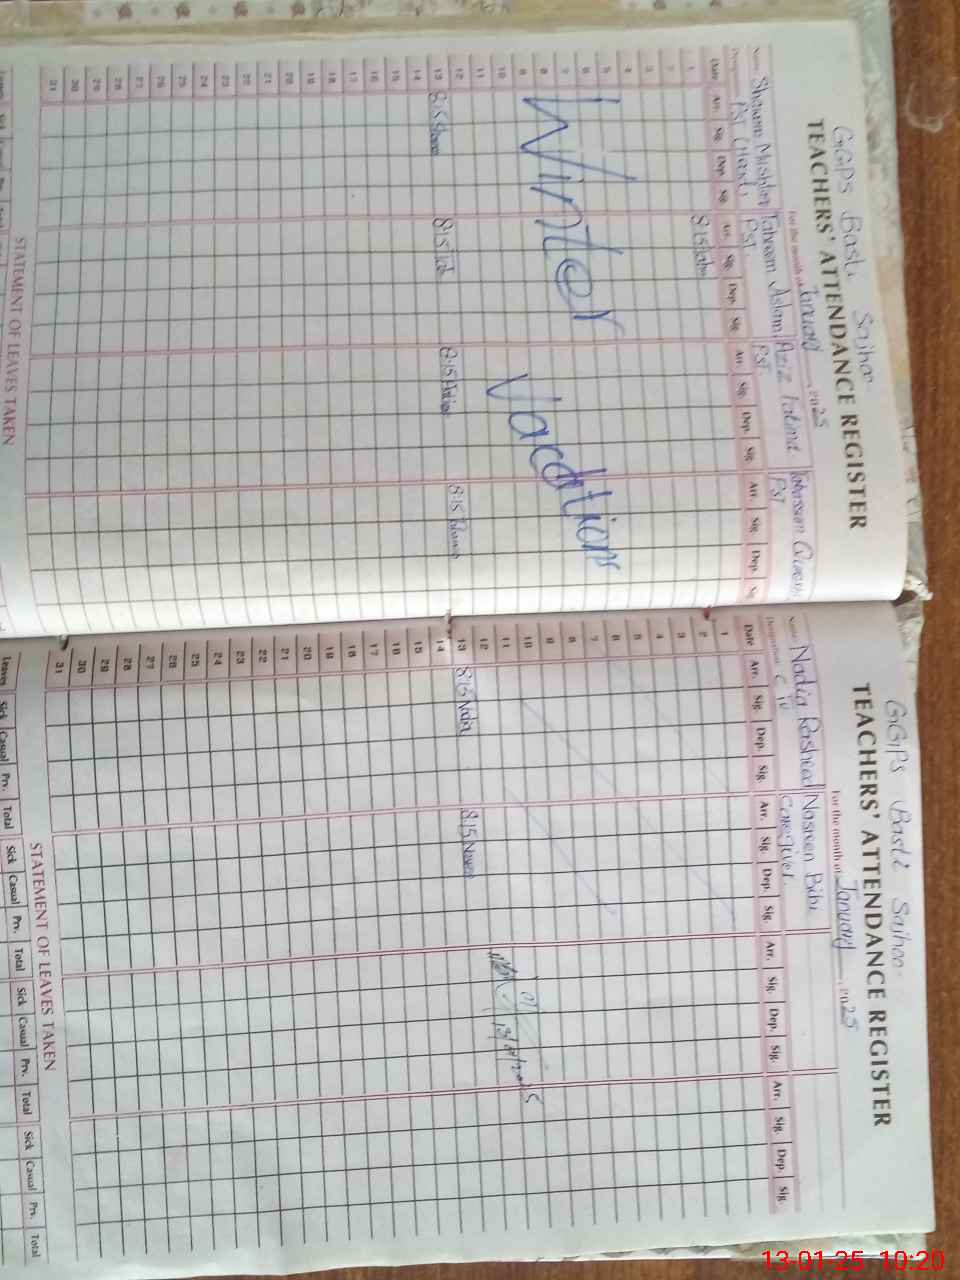 GGPS Basti Sajhoo
TEACHERS' ATTENDANCE REGISTER
For the month of January, 2025
Name Shamim Mushtaq Tahreem Aslam Aziz Fatima Tabassum
Designation PST (Head) PST PST PST
Date Arr. Sig. Dep. Sig. Arr. Sig. Dep. Sig. Arr. Sig. Dep. Sig. Arr. Sig. Dep. Sig.
1 8:15
2
3
4
5
6
7
8
9
Winter Vacations
10
11
12
13 8:15 8:15 8:15 8:15
14
15
16
17
18
19
20
21
22
23
24
25
26
27
28
29
30
31
STATEMENT OF LEAVES TAKEN
GGPS Basti Sajhoo
TEACHERS' ATTENDANCE REGISTER
For the month of January, 2025
Name Nadia Rasheed Nasreen Bibi
Designation C IV Caregiver
Date Arr. Sig. Dep. Sig. Arr. Sig. Dep. Sig. Arr. Sig. Dep. Sig. Arr. Sig. Dep. Sig.
1
2
3
4
5
6
7
8
9
10
11 13/01/2025
12
13 8:15 Nadia 8:15 Nasreen
14
15
16
17
18
19
20
21
22
23
24
25
26
27
28
29
30
31
STATEMENT OF LEAVES TAKEN
Leaves Sick Casual Prv. Total Sick Casual Prv. Total Sick Casual Prv. Total Sick Casual Prv. Total
13-01-25 10:20